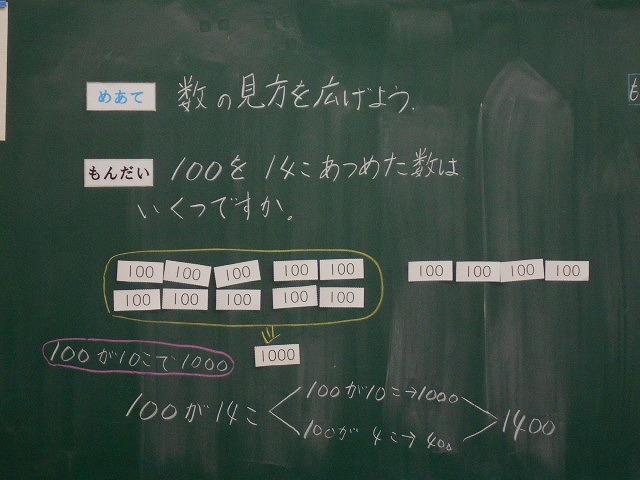 めあて 数の見方を広げよう.
もんだい 100を14こあつめた数は
いくつですか。
100 100 100 100 100 100 100 100 100
100 100 100 100 100
1000
100が10こで1000
100が10こ→1000
100が14こ 1400
100が4こ→400